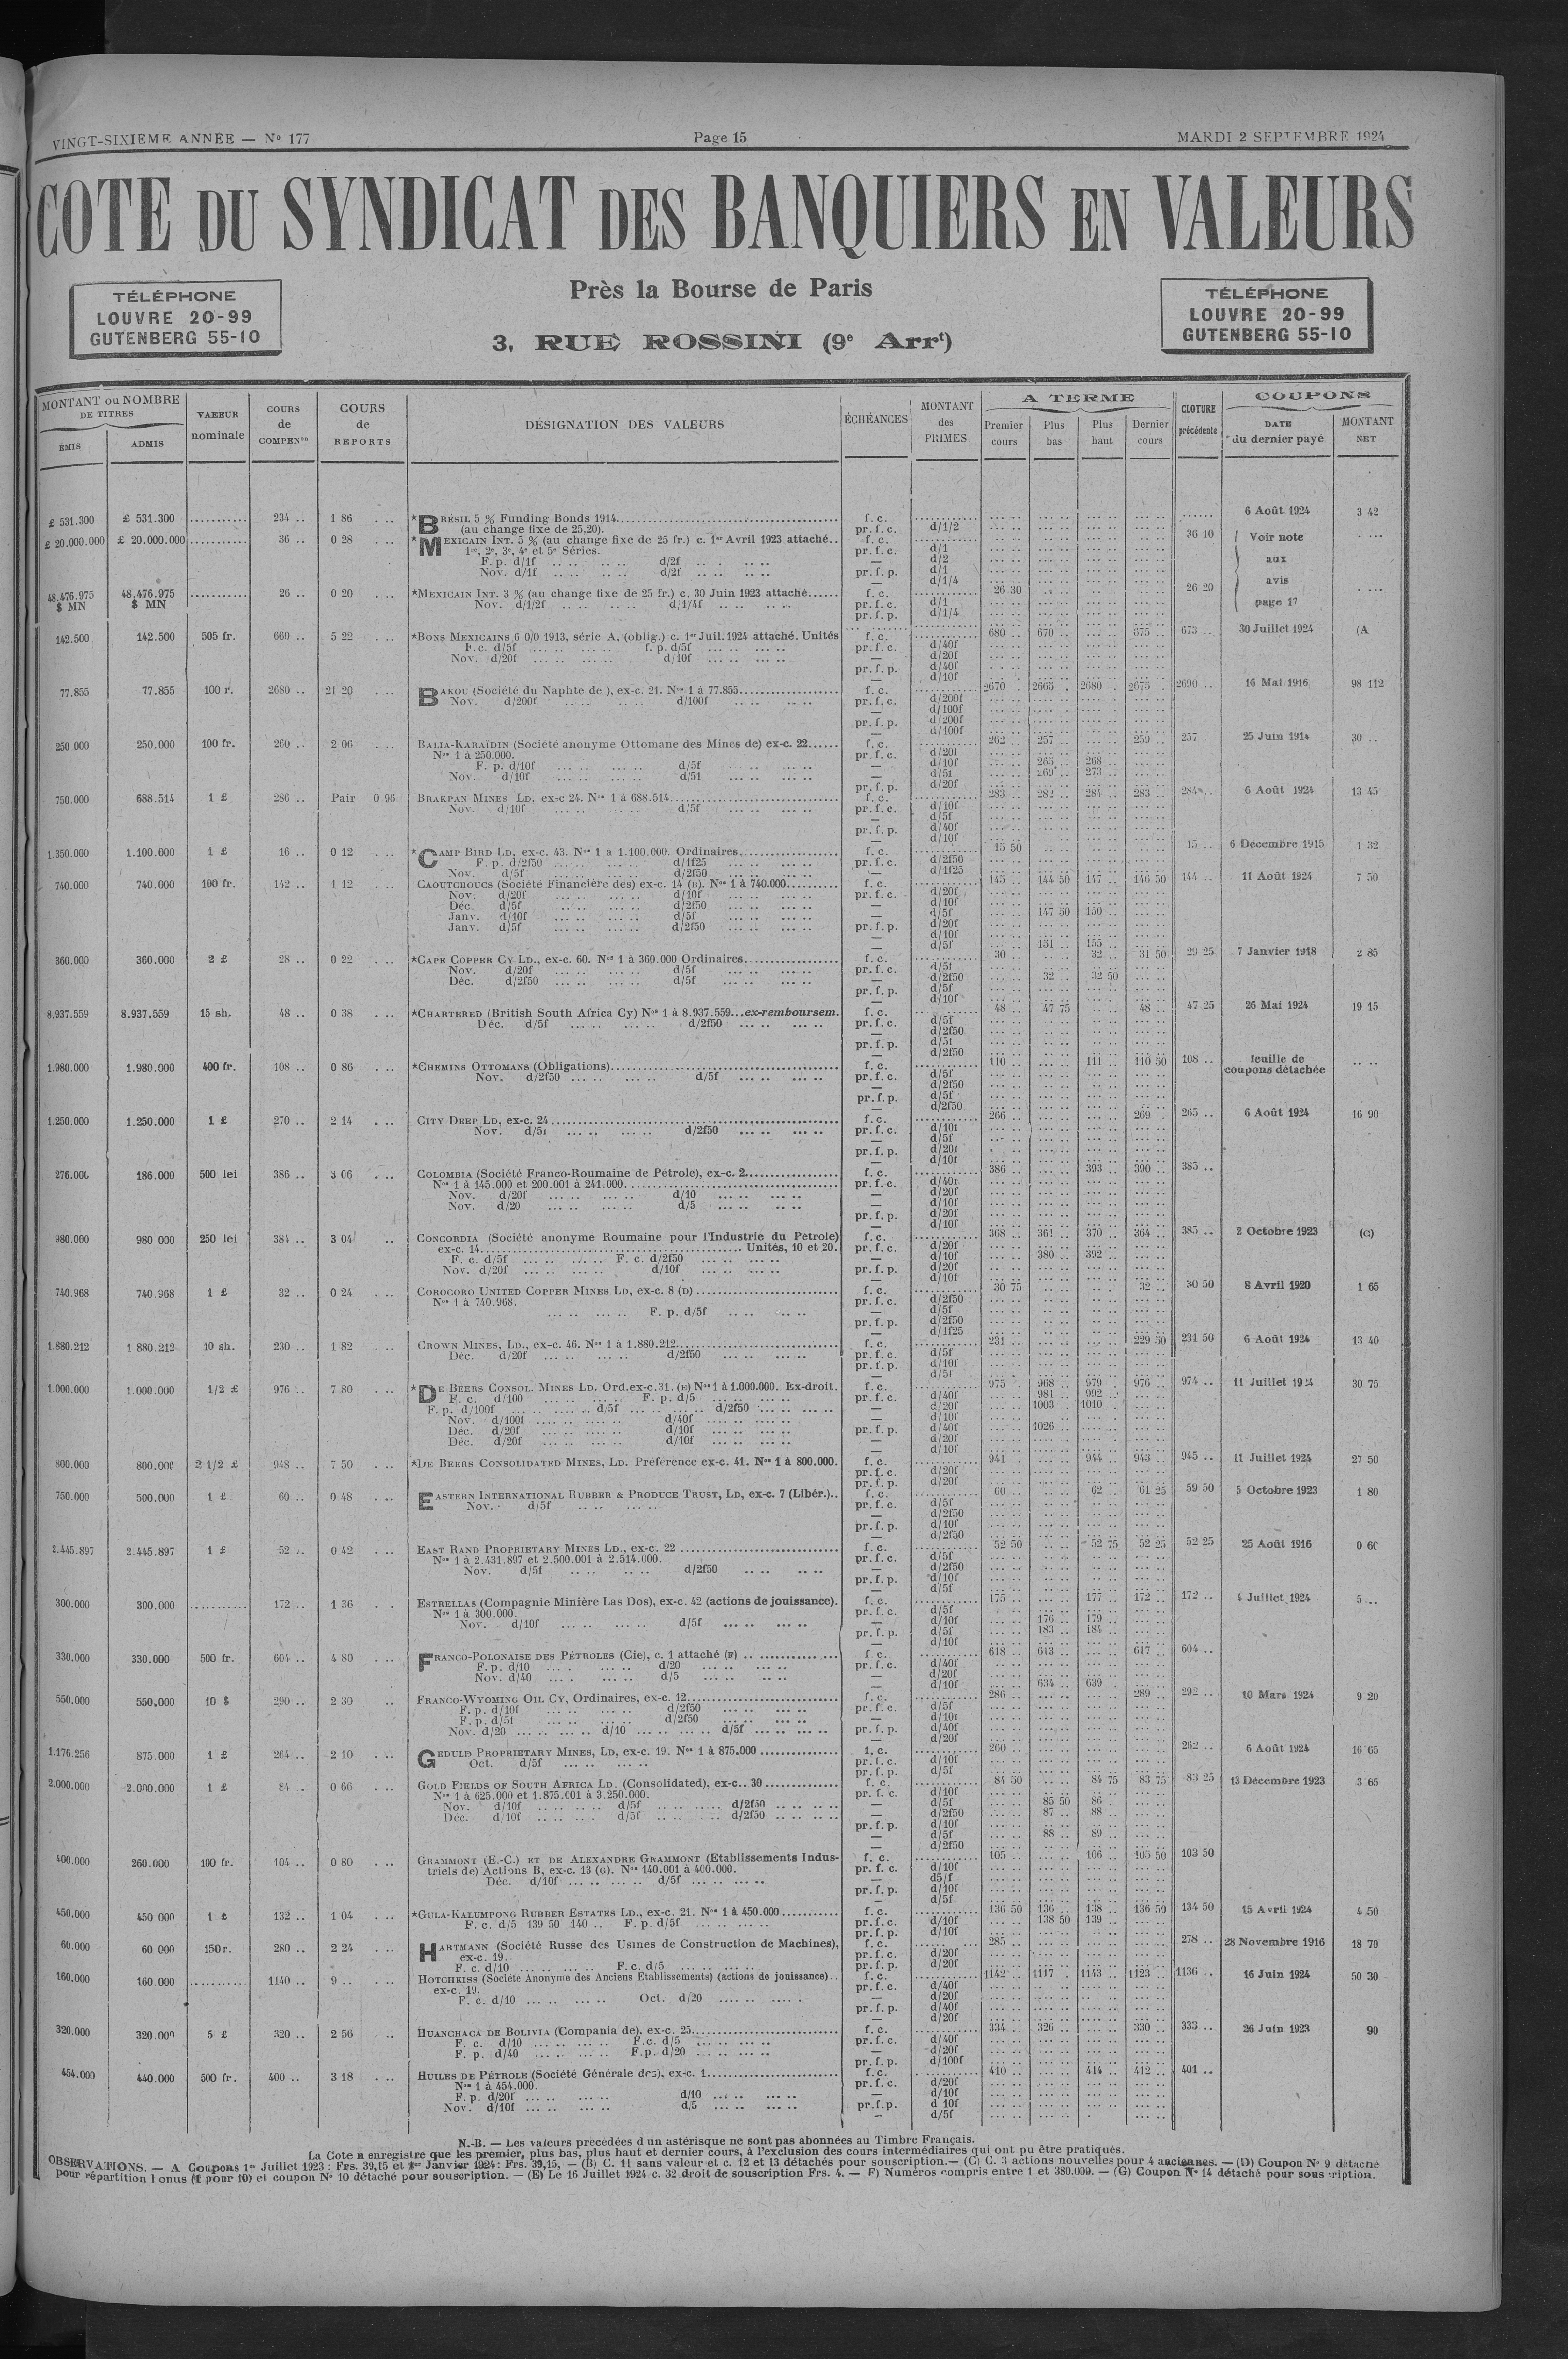 VINGT-SIXIEME ANNÉE — Nº 177 Page 15 MARDI 2 SEPTEMBRE 1924
COTE DU SYNDICAT DES BANQUIERS EN VALEURS
Près la Bourse de Paris
TÉLÉPHONE LOUVRE 20-99 GUTENBERG 55-10
3, RUE ROSSINI (9e Arrt)
TÉLÉPHONE LOUVRE 20-99 GUTENBERG 55-10
MONTANT ou NOMBRE DE TITRES ÉMIS ADMIS VALEUR nominale COURS de COMPENon COURS de REPORTS DÉSIGNATION DES VALEURS ÉCHÉANCES MONTANT des PRIMES A TERME Premier cours Plus bas Plus haut Dernier cours CLOTURE précédente COUPONS DATE du dernier payé MONTANT NET
£ 531.300 £ 531.300 234 .. 1 86 *BRÉSIL 5 % Funding Bonds 1914 f. c. 6 Août 1924 3 42
(au change fixe de 25,20). pr. f. c. d/1/2
£ 20.000.000 £ 20.000.000 36 .. 0 28 *MEXICAIN INT. 5 % (au change fixe de 25 fr.) c. 1er Avril 1923 attaché.. f. c. 36 10 Voir note
1re, 2e, 3e, 4e et 5e Séries. pr. f. c. d/1
F. p. d/1f d/2f — d/2 aux
Nov. d/1f d/2f pr. f. p. d/1
d/1/4 avis
48.476.975 $ MN 48.476.975 $ MN 26 .. 0 20 *MEXICAIN INT. 3 % (au change fixe de 25 fr.) c. 30 Juin 1923 attaché f. c. 26 30 26 20
Nov. d/1/2f d/1/4f pr. f. c. d/1 page 17
pr. f. p. d/1/4
142.500 142.500 505 fr. 660 .. 5 22 *BONS MEXICAINS 6 0/0 1913, série A, (oblig.) c. 1er Juil. 1924 attaché. Unités f. c. 680 .. 670 .. 675 .. 673 .. 30 Juillet 1924 (A
F. c. d/5f f. p. d/5f pr. f. c. d/40f
Nov. d/20f d/10f — d/20f
pr. f. p. d/40f
— d/10f
77.855 77.855 100 r. 2680 .. 21 20 BAKOU (Société du Naphte de ), ex-c. 21. Nos 1 à 77.855 f. c. 2670 . 2665 . 2680 . 2675 . 2690 .. 16 Mai 1916 98 112
Nov. d/200f d/100f pr. f. c. d/200f
— d/100f
pr. f. p. d/200f
— d/100f
250 000 250.000 100 fr. 260 .. 2 06 BALIA-KARAÏDIN (Société anonyme Ottomane des Mines de) ex-c. 22 f. c. 262 .. 257 .. 259 .. 257 25 Juin 1914 30 ..
Nos 1 à 250.000. pr. f. c. d/20f
F. p. d/10f d/5f — d/10f 265 .. 268 ..
Nov. d/10f d/5f — d/5f 269 .. 273 ..
pr. f. p. d/20f
750.000 688.514 1 £ 286 .. Pair 0 96 BRAKPAN MINES LD, ex-c 24. Nos 1 à 688.514 f. c. 283 .. 282 .. 284 .. 283 .. 284 .. 6 Août 1924 13 45
Nov. d/10f d/5f pr. f. c. d/10f
— d/5f
pr. f. p. d/40f
— d/10f
1.350.000 1.100.000 1 £ 16 .. 0 12 *CAMP BIRD LD, ex-c. 43. Nos 1 à 1.100.000. Ordinaires f. c. 15 50 15 .. 6 Décembre 1915 1 32
F. p. d/2f50 d/1f25 pr. f. c. d/2f50
Nov. d/5f d/2f50 — d/1f25
740.000 740.000 100 fr. 142 .. 1 12 CAOUTCHOUCS (Société Financière des) ex-c. 14 (B). Nos 1 à 740.000 f. c. 145 .. 144 50 147 .. 146 50 144 .. 11 Août 1924 7 50
Nov. d/20f d/10f pr. f. c. d/20f
Déc. d/5f d/2f50 — d/10f
Janv. d/10f d/5f — d/5f 147 50 150 ..
Janv. d/5f d/2f50 pr. f. p. d/20f
— d/10f
— d/5f 151 .. 155 ..
360.000 360.000 2 £ 28 .. 0 22 *CAPE COPPER CY LD., ex-c. 60. Nos 1 à 360.000 Ordinaires f. c. 30 .. 32 .. 31 50 29 25 7 Janvier 1918 2 85
Nov. d/20f d/5f pr. f. c. d/5f
Déc. d/2f50 d/5f — d/2f50 32 .. 32 50
pr. f. p. d/5f
— d/10f
8.937.559 8.937.559 15 sh. 48 .. 0 38 *CHARTERED (British South Africa Cy) Nos 1 à 8.937.559...ex-remboursem. f. c. 48 .. 47 75 48 .. 47 25 26 Mai 1924 19 15
Déc. d/5f d/2f50 pr. f. c. d/5f
— d/2f50
pr. f. p. d/5f
— d/2f50
1.980.000 1.980.000 400 fr. 108 .. 0 86 *CHEMINS OTTOMANS (Obligations) f. c. 110 .. 111 .. 110 50 108 .. feuille de coupons détachée
Nov. d/2f50 d/5f pr. f. c. d/5f
— d/2f50
pr. f. p. d/5f
— d/2f50
1.250.000 1.250.000 1 £ 270 .. 2 14 CITY DEEP LD, ex-c. 24 f. c. 266 .. 269 .. 265 .. 6 Août 1924 16 90
Nov. d/5f d/2f50 pr. f. c. d/10f
— d/5f
pr. f. p. d/20f
— d/10f
276.000 186.000 500 lei 386 .. 3 06 COLOMBIA (Société Franco-Roumaine de Pétrole), ex-c. 2 f. c. 386 .. 393 .. 390 .. 385 ..
Nos 1 à 145.000 et 200.001 à 241.000 pr. f. c. d/40f
Nov. d/20f d/10 — d/20f
Nov. d/20 d/5 — d/10f
pr. f. p. d/20f
— d/10f
980.000 980 000 250 lei 384 .. 3 04 CONCORDIA (Société anonyme Roumaine pour l'Industrie du Petrole) f. c. 368 .. 361 .. 370 .. 364 .. 385 .. 2 Octobre 1923 (C)
ex-c. 14 Unités, 10 et 20. pr. f. c. d/20f
F. c. d/5f F. c. d/2f50 — d/10f 380 .. 392 ..
Nov. d/20f d/10f pr. f. p. d/20f
— d/10f
740.968 740.968 1 £ 32 .. 0 24 COROCORO UNITED COPPER MINES LD, ex-c. 8 (D) f. c. 30 75 32 .. 30 50 8 Avril 1920 1 65
Nos 1 à 740.968. pr. f. c. d/2f50
F. p. d/5f — d/5f
pr. f. p. d/2f50
— d/1f25
1.880.212 1 880.212 10 sh. 230 .. 1 82 CROWN MINES, LD., ex-c. 46. Nos 1 à 1.880.212 f. c. 231 .. 229 50 231 50 6 Août 1924 13 40
Déc. d/20f d/2f50 pr. f. c. d/5f
pr. f. p. d/10f
— d/5f
1.000.000 1.000.000 1/2 £ 976 .. 7 80 *DE BEERS CONSOL. MINES LD. Ord. ex-c. 31. (E) Nos 1 à 1.000.000. Ex-droit. f. c. 975 968 979 976 .. 974 .. 11 Juillet 1924 30 75
F. c. d/100 F. p. d/5 pr. f. c. d/40f 981 .. 992 ..
F. p. d/100f d/5f d/2f50 — d/20f 1003 1010
Nov. d/100f d/40f — d/10f
Déc. d/20f d/10f pr. f. p. d/40f 1026
Déc. d/20f d/10f — d/20f
— d/10f
800.000 800.000 2 1/2 £ 948 .. 7 50 *DE BEERS CONSOLIDATED MINES, LD. Préférence ex-c. 41. Nos 1 à 800.000. f. c. 941 944 .. 943 .. 945 .. 11 Juillet 1924 27 50
pr. f. c. d/20f
pr. f. p. d/20f
750.000 500.000 1 £ 60 .. 0 48 EASTERN INTERNATIONAL RUBBER & PRODUCE TRUST, LD, ex-c. 7 (Libér.).. f. c. 60 .. 62 .. 61 25 59 50 5 Octobre 1923 1 80
Nov. d/5f pr. f. c. d/5f
— d/2f50
pr. f. p. d/10f
— d/2f50
2.445.897 2.445.897 1 £ 52 .. 0 42 EAST RAND PROPRIETARY MINES LD., ex-c. 22 f. c. 52 50 52 75 52 25 52 25 25 Août 1916 0 60
Nos 1 à 2.431.897 et 2.500.001 à 2.514.000. pr. f. c. d/5f
Nov. d/5f d/2f50 — d/2f50
pr. f. p. d/10f
— d/5f
300.000 300.000 172 .. 1 36 ESTRELLAS (Compagnie Minière Las Dos), ex-c. 42 (actions de jouissance). f. c. 175 .. 177 .. 172 .. 172 .. 4 Juillet 1924 5 ..
Nos 1 à 300.000. pr. f. c. d/5f
Nov. d/10f d/5f — d/10f 176 .. 179 ..
pr. f. p. d/5f 183 .. 184 ..
— d/10f
330.000 330.000 500 fr. 604 .. 4 80 FRANCO-POLONAISE DES PÉTROLES (Cie), c. 1 attaché (F) f. c. 618 .. 613 .. 617 .. 604 ..
F. p. d/10 d/20 pr. f. c. d/40f
Nov. d/40 d/5 — d/20f
— d/10f 634 .. 639 ..
550.000 550,000 10 $ 290 .. 2 30 FRANCO-WYOMING OIL CY, Ordinaires, ex-c. 12 f. c. 286 .. 289 .. 292 .. 10 Mars 1924 9 20
F. p. d/10f d/2f50 pr. f. c. d/5f
F. p. d/5f d/2f50 — d/10f
Nov. d/20 d/10 d/5f pr. f. p. d/40f
— d/20f
1.176.256 875.000 1 £ 264 .. 2 10 GEDULD PROPRIETARY MINES, LD, ex-c. 19. Nos 1 à 875.000 f. c. 260 .. 262 .. 6 Août 1924 16 65
Oct. d/5f pr. f. c. d/10f
pr. f. p. d/5f
2.000.000 2.000.000 1 £ 84 .. 0 66 GOLD FIELDS OF SOUTH AFRICA LD. (Consolidated), ex-c.. 30 f. c. 84 50 84 75 83 75 83 25 13 Décembre 1923 3 65
Nos 1 à 625.000 et 1.875.001 à 3.250.000. pr. f. c. d/10f
Nov. d/10f d/5f d/2f50 — d/5f 85 50 86 ..
Déc. d/10f d/5f d/2f50 — d/2f50 87 .. 88 ..
pr. f. p. d/10f
— d/5f 88 .. 89 ..
— d/2f50
400.000 260.000 100 fr. 104 .. 0 80 GRAMMONT (E.-C.) ET DE ALEXANDRE GRAMMONT (Etablissements Indus- f. c. 105 .. 106 .. 105 50 103 50
triels de) Actions B, ex-c. 13 (G). Nos 140.001 à 400.000. pr. f. c. d/10f
Déc. d/10f d/5f — d5/f
pr. f. p. d/10f
— d/5f
450.000 450 000 1 £ 132 .. 1 04 *GULA-KALUMPONG RUBBER ESTATES LD., ex-c. 21. Nos 1 à 450.000 f. c. 136 50 136 .. 138 .. 136 50 134 50 15 Avril 1924 4 50
F. c. d/5 139 50 140 .. F. p. d/5f pr. f. c. d/10f 138 50 139 ..
pr. f. p. d/10f
60.000 60 000 150 r. 280 .. 2 24 HARTMANN (Société Russe des Usines de Construction de Machines), f. c. 285 278 .. 28 Novembre 1916 18 70
ex-c. 19. pr. f. c. d/20f
F. c. d/10 F. c. d/5 pr. f. p. d/20f
160.000 160 000 1140 .. 9 .. HOTCHKISS (Société Anonyme des Anciens Etablissements) (actions de jouissance).. f. c. 1142 .. 1117 . 1143 .. 1123 .. 1136 .. 16 Juin 1924 50 30
ex-c. 19. pr. f. c. d/40f
F. c. d/10 Oct. d/20 — d/20f
pr. f. p. d/40f
— d/20f
320.000 320.000 5 £ 320 .. 2 56 HUANCHACA DE BOLIVIA (Compania de). ex-c. 25 f. c. 334 .. 326 .. 330 .. 333 .. 26 Juin 1923 90
F. c. d/10 F.c. d/5 pr. f. c. d/40f
F. p. d/40 F.p. d/20 — d/20f
pr. f. p. d/100f
454.000 440.000 500 fr. 400 .. 3 18 HUILES DE PÉTROLE (Société Générale des), ex-c. 1 f. c. 410 .. 414 .. 412 .. 401 ..
Nos 1 à 454.000. pr. f. c. d/20f
F. p. d/20f d/10 — d/10f
Nov. d/10f d/5 pr.f.p. d 10f
— d/5f
N.-B. — Les valeurs précédées d un astérisque ne sont pas abonnées au Timbre Français.
La Cote n enregistre que les premier, plus bas, plus haut et dernier cours, à l'exclusion des cours intermédiaires qui ont pu être pratiqués.
OBSERVATIONS. — A Coupons 1er Juillet 1923 : Frs. 39,15 et 1er Janvier 1924 : Frs. 39,15, — (B) C. 11 sans valeur et c. 12 et 13 détachés pour souscription.— (C) C. 3 actions nouvelles pour 4 anciennes. — (D) Coupon No 9 détaché
pour répartition bonus (1 pour 10) et coupon No 10 détaché pour souscription. — (E) Le 16 Juillet 1924 c. 32 droit de souscription Frs. 4. — F) Numéros compris entre 1 et 380.000. — (G) Coupon No 14 détaché pour souscription.